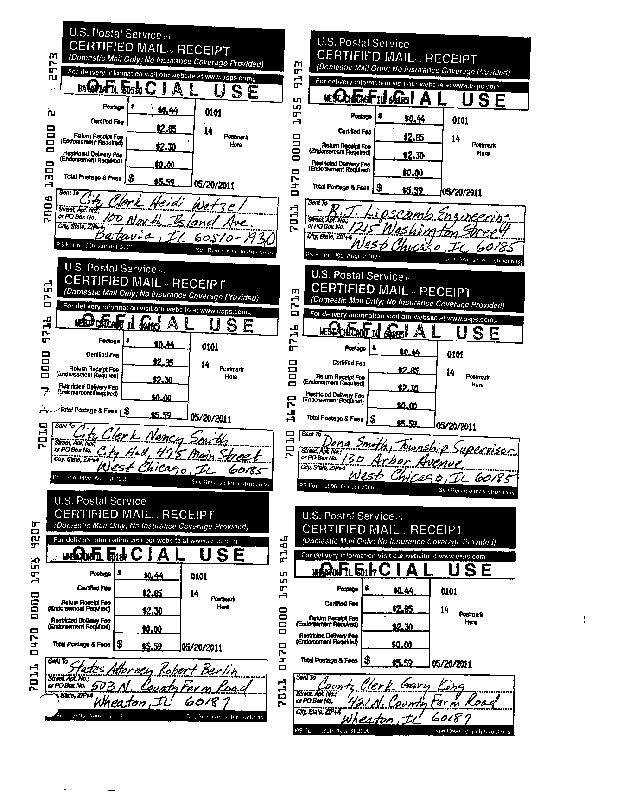 U.S. Postal Service
CERTIFIED MAIL RECEIPT
(Domestic Mail Only; No Insurance Coverage Provided)
For delivery information visit our website at www.usps.com
OFFICIAL USE
Postage $ $0.44 0101
Certified Fee $2.85 14 Postmark Here
Return Receipt Fee (Endorsement Required) $2.30
Restricted Delivery Fee (Endorsement Required) $0.00
Total Postage & Fees $ $5.59 05/20/2011
Sent To City Clerk Heidi Wetzel
Street, Apt. No.; or PO Box No. 100 North Island Ave.
City, State, ZIP+4 Batavia, IL 60510-1930
7006 1300 0000 2 2973
U.S. Postal Service
CERTIFIED MAIL RECEIPT
(Domestic Mail Only; No Insurance Coverage Provided)
For delivery information visit our website at www.usps.com
OFFICIAL USE
WEST CHICAGO IL 60185
Postage $ $0.44 0101
Certified Fee $2.85 14 Postmark Here
Return Receipt Fee (Endorsement Required) $2.30
Restricted Delivery Fee (Endorsement Required) $0.00
Total Postage & Fees $ $5.59 05/20/2011
Sent To Lipscomb Engineering
Street, Apt. No.; or PO Box No. 1215 Washington Street
City, State, ZIP+4 West Chicago, IL 60185
7011 0470 0000 1955 9193
U.S. Postal Service
CERTIFIED MAIL RECEIPT
(Domestic Mail Only; No Insurance Coverage Provided)
For delivery information visit our website at www.usps.com
OFFICIAL USE
WEST CHICAGO IL 60185
Postage $ $0.44 0101
Certified Fee $2.85 14 Postmark Here
Return Receipt Fee (Endorsement Required) $2.30
Restricted Delivery Fee (Endorsement Required) $0.00
Total Postage & Fees $ $5.59 05/20/2011
Sent To City Clerk Nancy Smith
Street, Apt. No.; or PO Box No. City Hall, 475 Main Street
City, State, ZIP+4 West Chicago, IL 60185
7010 0000 9716 0751
U.S. Postal Service
CERTIFIED MAIL RECEIPT
(Domestic Mail Only; No Insurance Coverage Provided)
For delivery information visit our website at www.usps.com
OFFICIAL USE
WEST CHICAGO IL 60185
Postage $ $0.44 0101
Certified Fee $2.85 14 Postmark Here
Return Receipt Fee (Endorsement Required) $2.30
Restricted Delivery Fee (Endorsement Required) $0.00
Total Postage & Fees $ $5.59 05/20/2011
Sent To Dona Smith, Township Supervisor
Street, Apt. No.; or PO Box No. 130 Arbor Avenue
City, State, ZIP+4 West Chicago, IL 60185
7010 1670 0000 9716 0713
U.S. Postal Service
CERTIFIED MAIL RECEIPT
(Domestic Mail Only; No Insurance Coverage Provided)
For delivery information visit our website at www.usps.com
OFFICIAL USE
WHEATON IL 60187
Postage $ $0.44 0101
Certified Fee $2.85 14 Postmark Here
Return Receipt Fee (Endorsement Required) $2.30
Restricted Delivery Fee (Endorsement Required) $0.00
Total Postage & Fees $ $5.59 05/20/2011
Sent To States Attorney Robert Berlin
Street, Apt. No.; or PO Box No. 503 N. County Farm Road
City, State, ZIP+4 Wheaton, IL 60187
7011 0470 0000 1955 9209
U.S. Postal Service
CERTIFIED MAIL RECEIPT
(Domestic Mail Only; No Insurance Coverage Provided)
For delivery information visit our website at www.usps.com
OFFICIAL USE
WHEATON IL 60187
Postage $ $0.44 0101
Certified Fee $2.85 14 Postmark Here
Return Receipt Fee (Endorsement Required) $2.30
Restricted Delivery Fee (Endorsement Required) $0.00
Total Postage & Fees $ $5.59 05/20/2011
Sent To County Clerk Gary King
Street, Apt. No.; or PO Box No. 421 N. County Farm Road
City, State, ZIP+4 Wheaton, IL 60187
7011 0470 0000 1955 9186